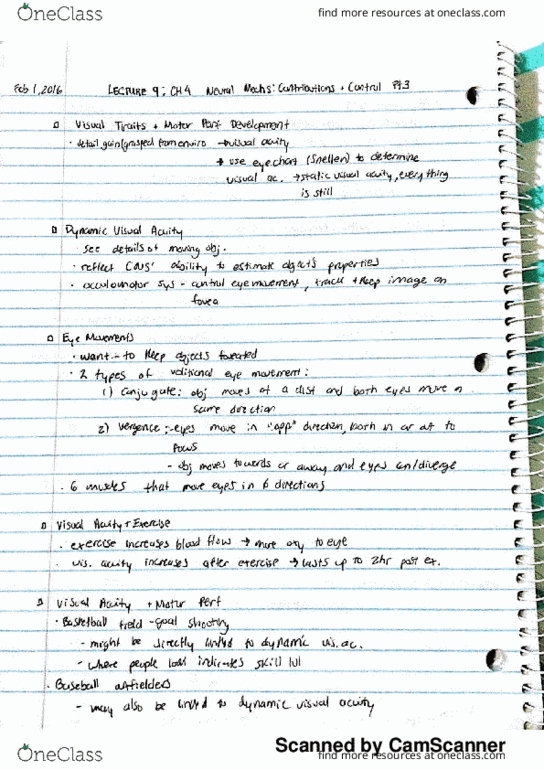 OneClass
find more resources at oneclass.com
Feb 1, 2016 LECTURE 9: CH4 Neural Mechs: Contributions + Control Pt3
Visual Traits + Motor Perf Development
· detail gain/grasped from enviro → visual acuity
→ use eye chart (Snellen) to determine
visual ac. → static visual acuity, everything
is still
Dynamic Visual Acuity
see details of moving obj.
· reflect CNS' ability to estimate object's properties
· occulomotor sys - control eye movement, track + keep image on
fovea
Eye Movements
· want to keep objects foveated
· 2 types of volitional eye movement:
1) conjugate: obj moves at a dist and both eyes move in
same direction
2) vergence: eyes move in "opp" direction, both in or out to
focus
- obj moves towards or away and eyes con/diverge
· 6 muscles that move eyes in 6 directions
Visual Acuity + Exercise
· exercise increases blood flow → more oxy to eye
· vis. acuity increases after exercise → lasts up to 2hr post ex.
Visual Acuity + Motor Perf
· Basketball field-goal shooting
- might be directly linked to dynamic vis. ac.
- where people look indicates skill lvl
· Baseball outfielders
- may also be linked to dynamic visual acuity
Scanned by CamScanner
OneClass
find more resources at oneclass.com